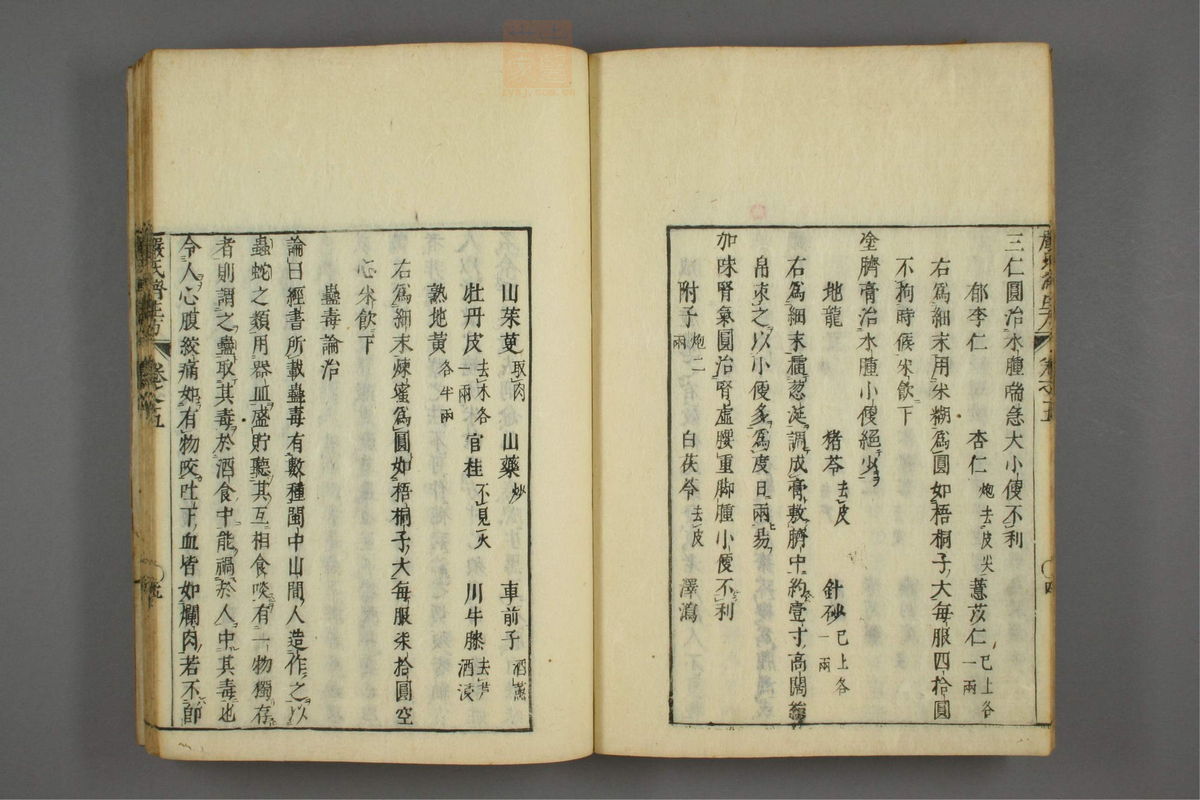 三仁圓治水腫喘急大小便不利
郁李仁 杏仁炮去皮尖 薏苡仁已上各一兩
右爲細末用米糊爲圓如梧桐子大每服四拾圓
不拘時候米飲下
塗臍膏治水腫小便絕少
地龍 猪苓去皮 針砂已上各一兩
右爲細末擂葱涎調成膏敷臍中約壹寸高闊絹
帛束之以小便多爲度日兩易
加味腎氣圓治腎虛腰重脚腫小便不利
附子炮二兩 白茯苓去皮 澤瀉
山茱萸取肉 山藥炒 車前子酒蒸
牡丹皮去木各一兩 官桂不見火 川牛膝去芦酒浸
熟地黃各半兩
右爲細末煉蜜爲圓如梧桐子大每服柒拾圓空
心米飲下
蠱毒論治
論曰經書所載蠱毒有數種閩中山間人造作之以
蟲蛇之類用器皿盛貯聽其互相食啖有一物獨存
者則謂之蠱取其毒於酒食中能禍於人中其毒也
令人心腹絞痛如有物咬吐下血皆如爛肉若不即
嚴氏濟生方 卷之五